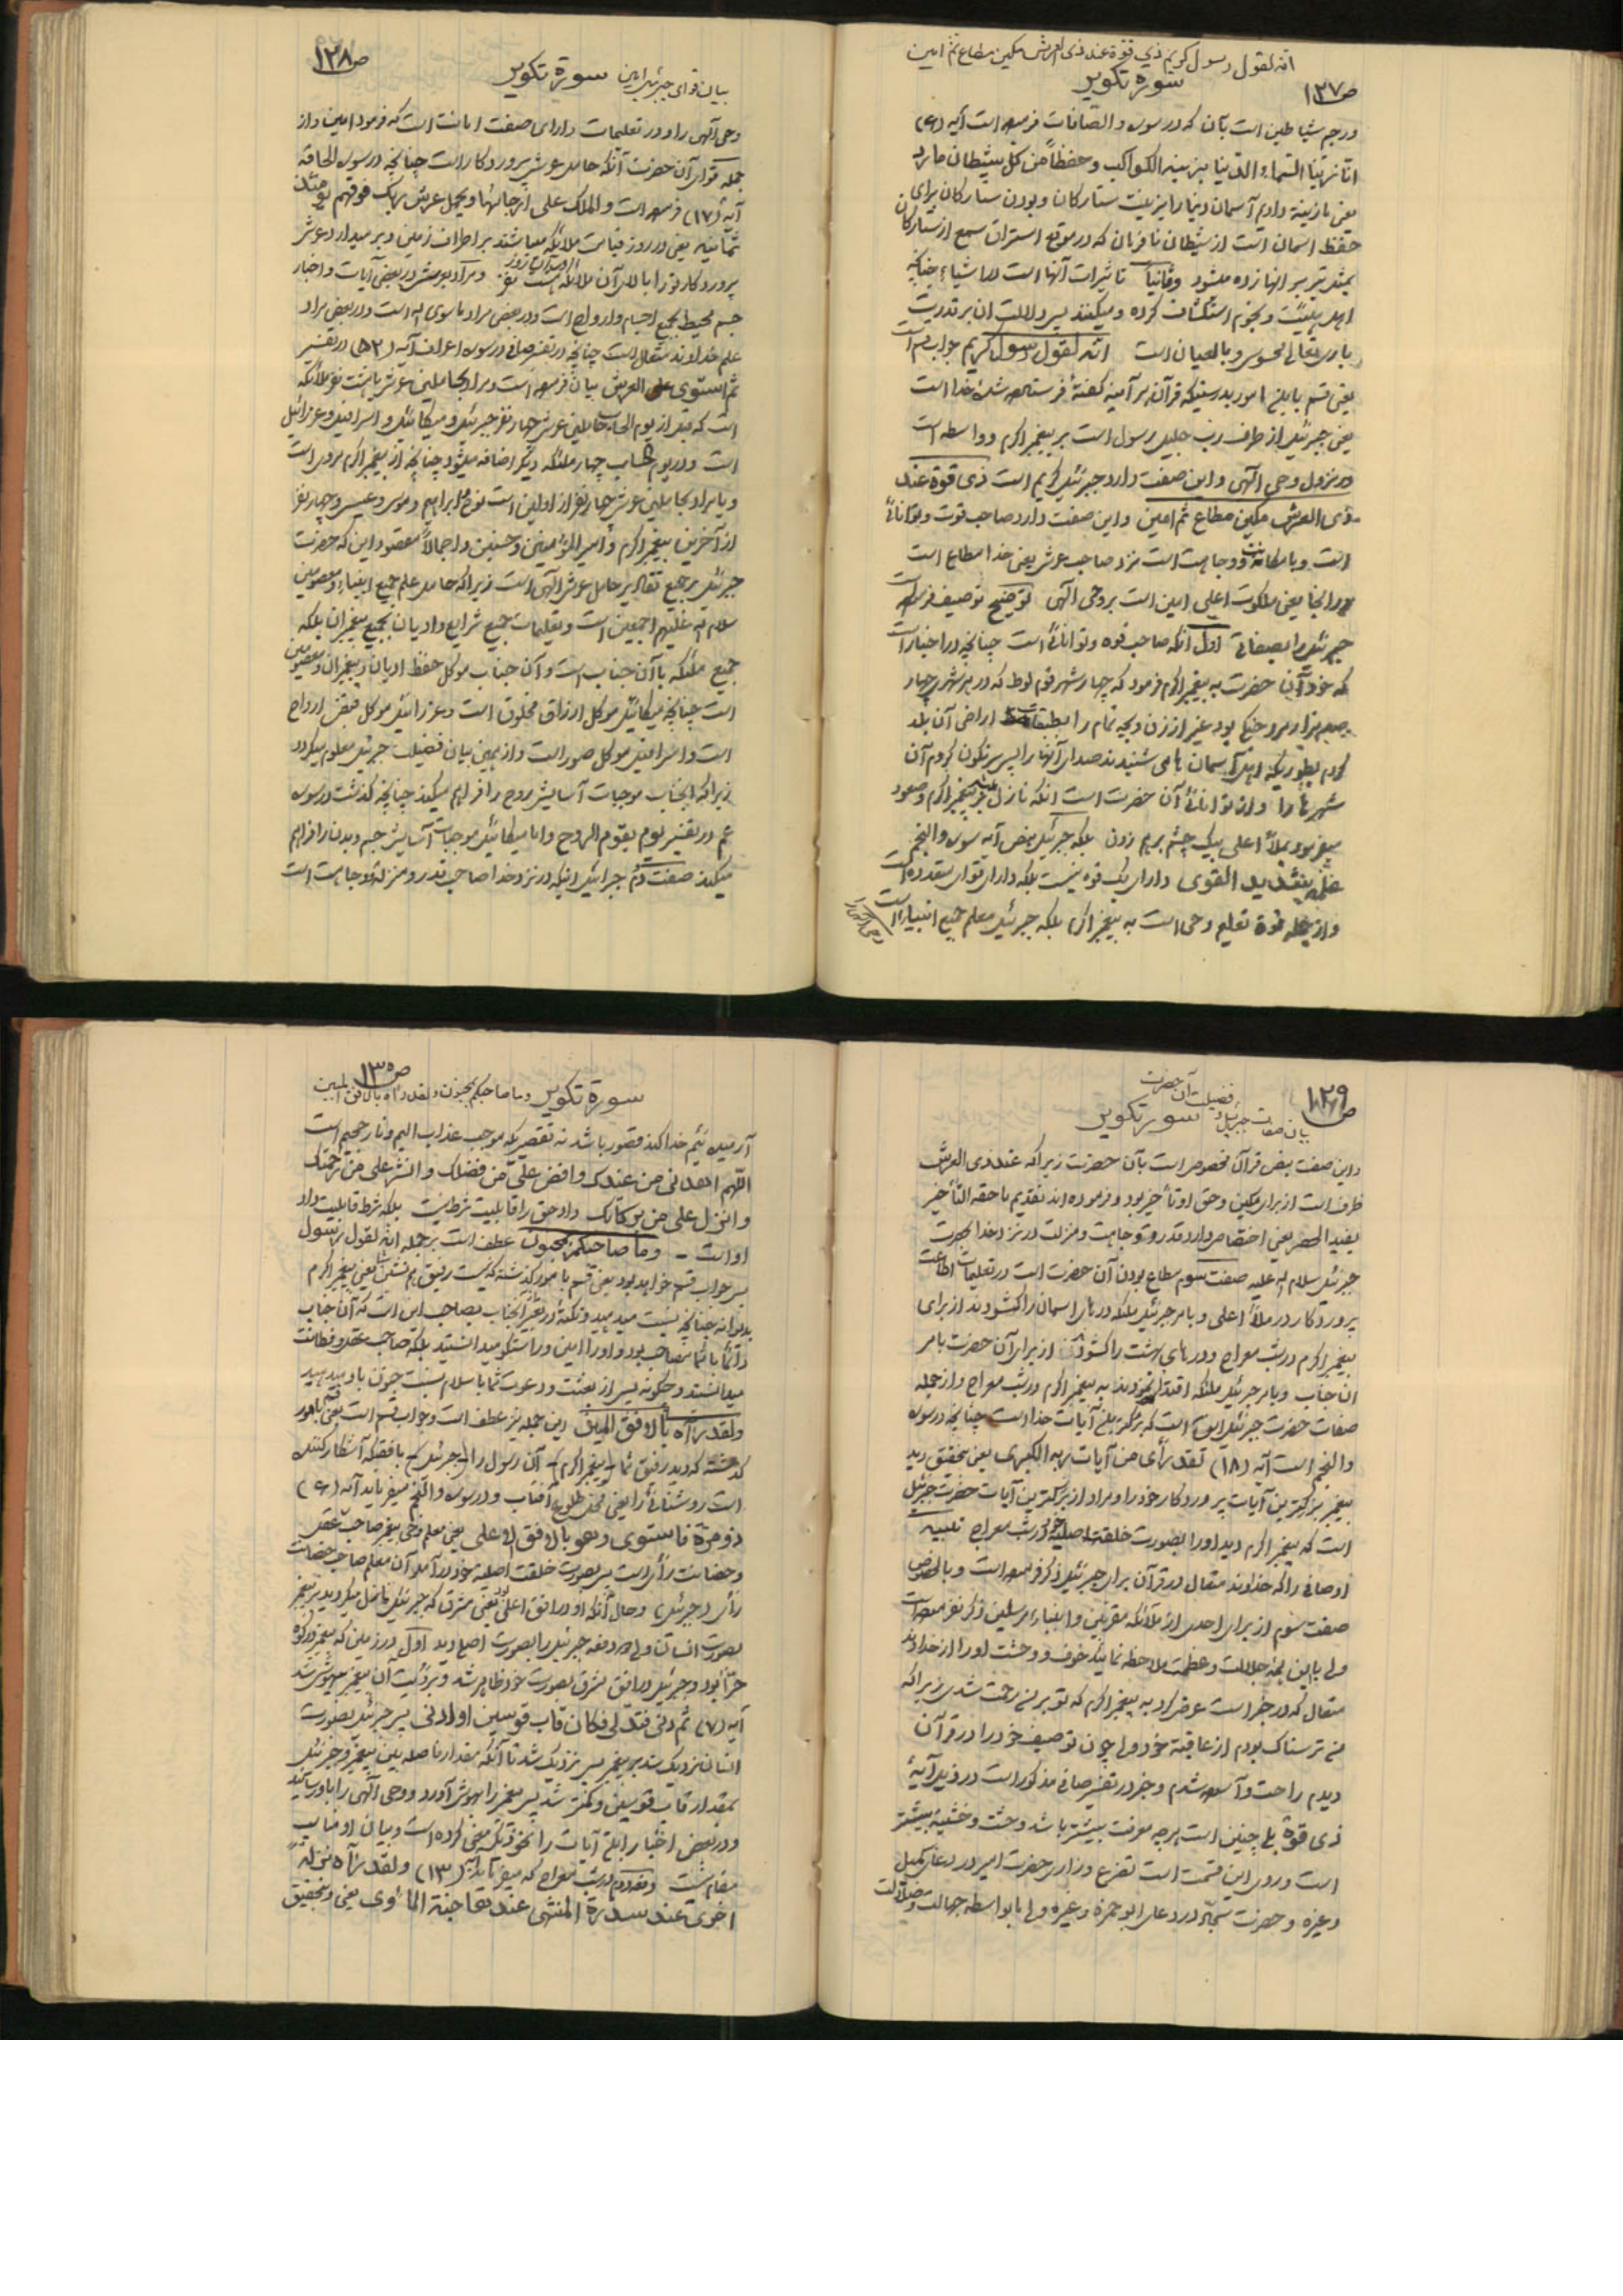 انه لقول رسول کریم ذی قوة عند ذی العرش مکین مطاع ثم امین
سورة تکویر
ص ۱۲۷
ورجم شیاطین است بآن که در سوره والصافات فرموده است آیه (۶)
انا زینا السماء الدنیا بزینة الکواکب وحفظاً من کل شیطان مارد
یعنی ما زینت دادیم آسمان دنیا را بزینت ستارکان و بودن ستارکان برای
حفظ اسمان است از شیطان نافرمان که در موقع استراق سمع از ستارکان
بمثل تیر بر انها زده میشود وثانیاً تاثیرات آنها است در اشیاء چنانکه
اهل هیئت و نجوم استکشاف کرده و میکنند پس دلالت ان بر قدرت
باری تعالی محسوس و بالعیان است انه لقول رسول کریم جواب قسم است
یعنی قسم باین امور بدرستیکه قرآن هر آینه کفتهٔ فرستاده شدهٔ خدا است
یعنی جبرئیل از طرف رب جلیل رسول است بر پیغمبر اکرم و واسطه است
در نزول وحی الهی و این صفت دارد جبرئیل کریم است ذی قوة عند
ذی العرش مکین مطاع ثم امین و این صفت دارد صاحب قوت و توانائی
است و با مکانت و وجاهت است نزد صاحب عرش یعنی خدا مطاع است
در انجا یعنی ملکوت اعلی امین است بر وحی الهی توضیح توصیف فرموده است
جبرئیل را بصفاتی اول آنکه صاحب قوه و توانائی است چنانچه در اخبار است
که خود آن حضرت به پیغمبر اکرم فرمود که چهار شهر قوم لوط که در هر شهری چهار
صد هزار مرد جنکی بود غیر از زن و بچه تمام را بطبقات اراضی آن بلند
کردم بطوریکه اهل آسمان ها می شنیدند صدای آنها را پس سرنکون کردم آن
شهرها را و از توانائی آن حضرت است انکه نازل میشد بر پیغمبر اکرم و صعود
میفرمود بملاء اعلی بیک چشم برهم زدن بلکه جبرئیل بنص آیه سوره والنجم
علمه شدید القوی دارای یک قوه نیست بلکه دارای قوای متعدده است
و از جمله قوة تعلیم وحی است به پیغمبر اکرم بلکه جبرئیل معلم جمیع انبیاء است
ص ۱۲۸
بیان قوای جبرئیل امین سورة تکویر
وحی الهی را و در تعلیمات دارای صفت امانت است که فرمود امین و از
جمله قوای آن حضرت آنکه حامل عرش پروردکار است چنانچه در سوره الحاقه
آیه (۱۷) فرموده است والملک علی ارجائها ویحمل عرش ربک فوقهم یومئذ
ثمانیه یعنی در روز قیامت ملائکه میباشند بر اطراف زمین و بر میدارد عرش
پروردکار تو را بالای آن ملائکه هشت نفر و مراد بعرش در بعض آیات و اخبار
جسم محیط بجمیع اجسام و ارواح است و در بعض مراد ما سوی الله است و در بعض مراد
علم خداوند متعال است چنانچه در تفسیر صافی در سوره اعراف آیه (۵۲) در تفسیر
ثم استوی علی العرش بیان فرموده است و مراد بحاملین عرش یا هشت نفر ملائکه
است که قبل از یوم الحساب حاملین عرش چهار نفر جبرئیل و میکائیل و اسرافیل و عزرائیل
است و در یوم الحساب چهار ملئکه دیکر اضافه میشود چنانچه از پیغمبر اکرم مروی است
و یا مراد بحاملین عرش چهار نفر از اولین است نوح ابراهیم و موسی و عیسی و چهار نفر
از آخرین پیغمبر اکرم و امیر المؤمنین و حسنین و اجمالاً مقصود این که حضرت
جبرئیل بر جمیع تقادیر حامل عرش الهی است زیرا که حامل علم جمیع انبیاء و معصومین
سلام الله علیهم اجمعین است و تعلیمات جمیع شرایع و ادیان بجمیع پیغمبران بلکه
جمیع ملئکه با آن جناب است و آن جناب موکل حفظ ادیان و پیغمبران و معصومین
است چنانچه میکائیل موکل ارزاق مخلوق است و عزرائیل موکل قبض ارواح
است و اسرافیل موکل صور است و از همین بیان فضیلت جبرئیل معلوم میکردد
زیرا که انجناب موجبات آسایش روح را فراهم میکند چنانچه کذشت در سوره
عم در تفسیر یوم یقوم الروح و اما میکائیل موجبات آسایش جسم و بدن را فراهم
میکند صفت دوم جبرائیل اینکه در نزد خدا صاحب قدر و منزله و وجاهت است
ص ۱۲۹
بیان صفات جبرئیل و فضیلت آن حضرت
سورة تکویر
و این صفت بنص قرآن مخصوص است بآن حضرت زیرا که عند ذی العرش
ظرف است از برای مکین و حق او تأخیر بود و فرموده اند تقدیم ما حقه التأخیر
یفید الحصر یعنی اختصاص دارد قدر و وجاهت و منزلت در نزد خدا بحضرت
جبرئیل سلام الله علیه صفت سوم مطاع بودن آن حضرت است در تعلیمات اطاعت
پروردکار در ملاء اعلی و بامر جبرئیل ملئکه درهای اسمان را کشودند از برای
پیغمبر اکرم در شب معراج و درهای بهشت را کشودند از برای آن حضرت بامر
ان جناب و بامر جبرئیل ملئکه اقتدا نمودند به پیغمبر اکرم در شب معراج و از جمله
صفات حضرت جبرئیل این است که بزرکترین آیات خدا است چنانچه در سوره
والنجم است آیه (۱۸) لقد رأی من آیات ربه الکبری یعنی بتحقیق دید
پیغمبر بزرکترین آیات پروردکار خود را و مراد از بزرکترین آیات حضرت جبرئیل
است که پیغمبر اکرم دید او را بصورت خلقت اصلیه خود در شب معراج تنبیه
اوصافی را که خداوند متعال در قرآن برای جبرئیل ذکر فرموده است و بالخصوص
صفت سوم از برای احدی از ملائکه مقربین و انبیاء مرسلین ذکر نفرموده است
ولی با این همه جلالت و عظمت ملاحظه نمائید خوف و وحشت او را از خداوند
متعال که در خبر است عرض کرد به پیغمبر اکرم که تو بر من رحمت شدی زیرا که
من ترسناک بودم از عاقبت خود ولی چون توصیف خود را در قرآن
دیدم راحت و آسوده شدم و خبر در تفسیر صافی مذکور است در ذیل آیهٔ
ذی قوة بلی چنین است هر چه معرفت بیشتر باشد وحشت و خشیة بیشتر
است و روی این قسمت است تضرع و زاری حضرت امیر در دعاء کمیل
و غیره و حضرت سجاد در دعای ابو حمزه و غیره ولی ما بواسطه جهالت و ضلالت
ص ۱۳۰
سورة تکویر وما صاحبکم بمجنون ولقد رآه بالافق المبین
آرمیده ئیم خدا کند قصور باشد نه تقصیریکه موجب عذاب الیم و نار جحیم است
اللهم اهدنی من عندک وافض علی من فضلک وانشر علی من رحمتک
وانزل علی من برکاتک داد حق را قابلیت شرط نیست بلکه شرط قابلیت داد
اوست - وما صاحبکم بمجنون عطف است بر جمله انه لقول رسول
پس جواب قسم خواهد بود یعنی قسم بامور کذشته که نیست رفیق و همنشین شما یعنی پیغمبر اکرم
دیوانه چنانچه نسبت میدهید و نکتهٔ در تعبیر انجناب بصاحب این است که آن جناب
دائماً با شما مصاحب بود و او را امین و راستکو میدانستید بلکه صاحب عقل و فطانت
میدانستید و چکونه پس از بعثت و دعوت شما باسلام نسبت جنون باو میدهید
ولقد رآه بالافق المبین این جمله نیز عطف است و جواب قسم است یعنی قسم بامور
کذشته که دید رفیق شما (پیغمبر اکرم) آن رسول را (جبرئیل) بافقیکه آشکار کننده
است روشنائی را یعنی محل طلوع آفتاب و در سوره والنجم میفرماید آیه (۶)
ذومرة فاستوی وهو بالافق الاعلی یعنی معلم وحی پیغمبر صاحب عقل
و حصانت رأی است پس بصورت خلقت اصلیه خود در آمد آن معلم صاحب حصانت
رأی (جبرئیل) و حال آنکه او در افق اعلی بود یعنی مشرق که جبرئیل نازل میکردید بر پیغمبر
بصورت انسان ولی دو دفعه جبرئیل را بصورت اصلی دید اول در زمین که پیغمبر در کوه
حرّاء بود و جبرئیل در افق مشرق بصورت خود ظاهر شد و برؤیت آن پیغمبر بیهوش شد
آیه (۷) ثم دنی فتدلی فکان قاب قوسین او ادنی پس جبرئیل بصورت
انسان نزدیک شد بر پیغمبر پس نزدیک شد تا آنکه مقدار فاصله بین پیغمبر و جبرئیل
بمقدار قاب قوسین و کمتر شد پس پیغمبر را بهوش آورد و وحی الهی را باو رسانید
و در بعض اخبار این آیات را بنحو دیکر معنی کرده است و بیان او مناسب
مقام نیست و دفعه دوم در شب معراج که میفرماید آیه (۱۳) ولقد رآه نزلة
اخری عند سدرة المنتهی عندها جنة المأوی یعنی و بتحقیق